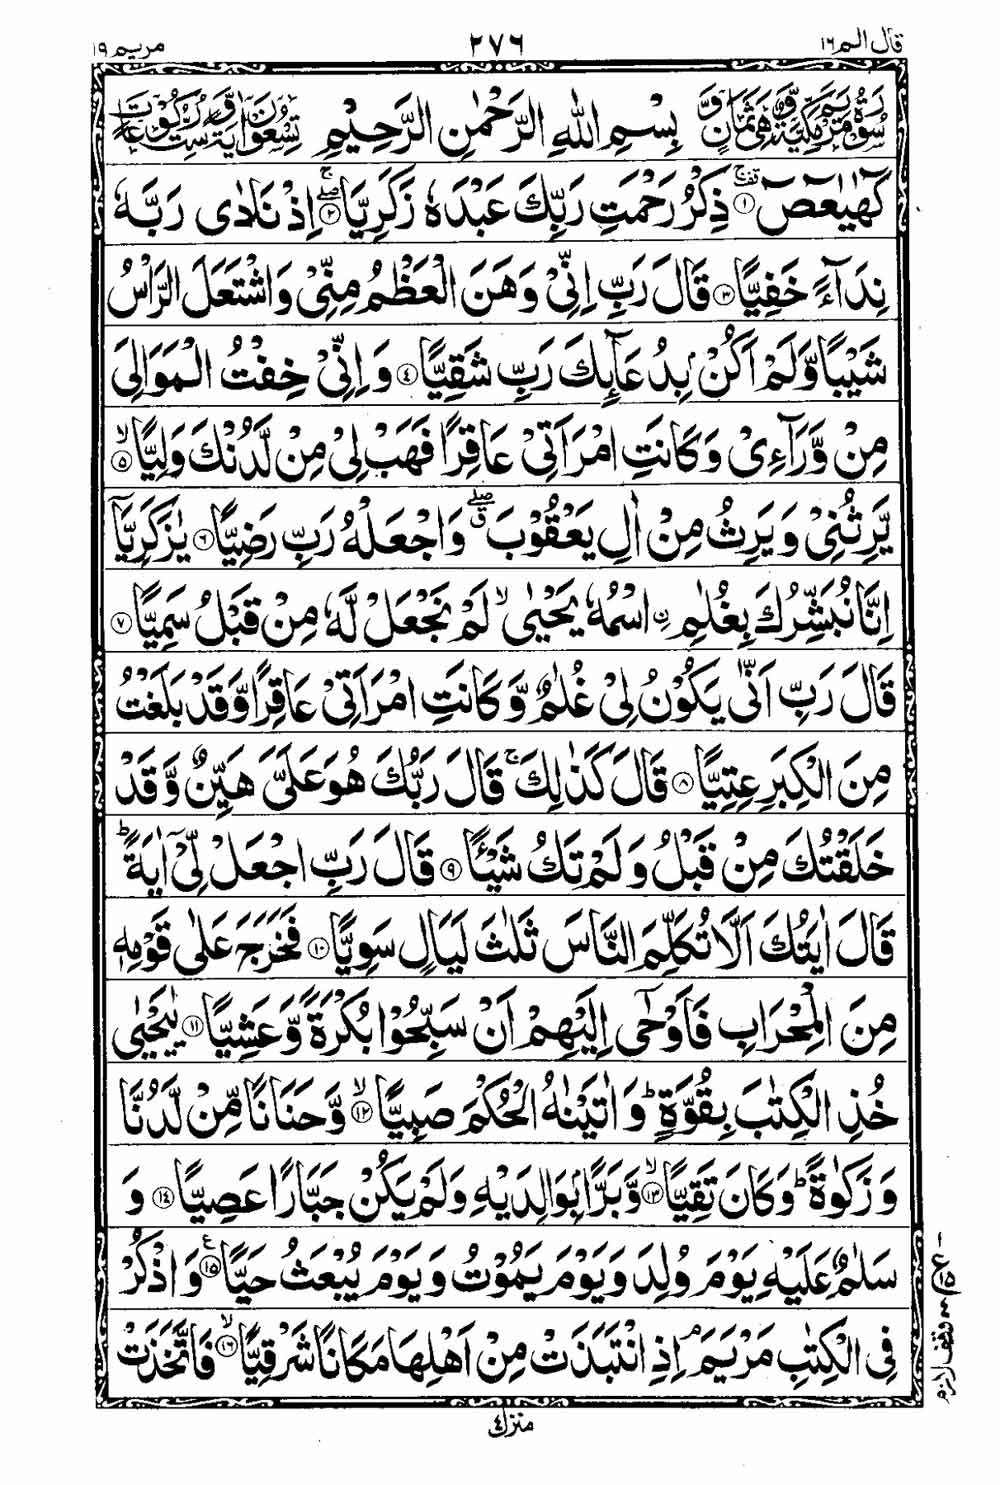 قال الم ١٦
٢٧٦
مريم ١٩
سُوْرَةُ مَرْيَمَ مَكِّيَّةٌ وَّهِيَ ثَمَانٌ وَّ
بِسْمِ اللهِ الرَّحْمٰنِ الرَّحِيْمِ
تِسْعُوْنَ اٰيَةً وَّسِتُّ رُكُوْعَاتٍ
كٓهٰيٰعٓصٓ ۚ﴿١﴾ ذِكْرُ رَحْمَتِ رَبِّكَ عَبْدَهٗ زَكَرِيَّا ۖۚ﴿٢﴾ اِذْ نَادٰى رَبَّهٗ
نِدَآءً خَفِيًّا ﴿٣﴾ قَالَ رَبِّ اِنِّيْ وَهَنَ الْعَظْمُ مِنِّيْ وَاشْتَعَلَ الرَّاْسُ
شَيْبًا وَّلَمْ اَكُنْۢ بِدُعَآئِكَ رَبِّ شَقِيًّا ﴿٤﴾ وَاِنِّيْ خِفْتُ الْمَوَالِيَ
مِنْ وَّرَآءِيْ وَكَانَتِ امْرَاَتِيْ عَاقِرًا فَهَبْ لِيْ مِنْ لَّدُنْكَ وَلِيًّا ۙ﴿٥﴾
يَّرِثُنِيْ وَيَرِثُ مِنْ اٰلِ يَعْقُوْبَ ۖق وَاجْعَلْهُ رَبِّ رَضِيًّا ﴿٦﴾ يٰزَكَرِيَّآ
اِنَّا نُبَشِّرُكَ بِغُلٰمِ ِۨ اسْمُهٗ يَحْيٰى ۙ لَمْ نَجْعَلْ لَّهٗ مِنْ قَبْلُ سَمِيًّا ﴿٧﴾
قَالَ رَبِّ اَنّٰى يَكُوْنُ لِيْ غُلٰمٌ وَّكَانَتِ امْرَاَتِيْ عَاقِرًا وَّقَدْ بَلَغْتُ
مِنَ الْكِبَرِ عِتِيًّا ﴿٨﴾ قَالَ كَذٰلِكَ ۚ قَالَ رَبُّكَ هُوَ عَلَيَّ هَيِّنٌ وَّقَدْ
خَلَقْتُكَ مِنْ قَبْلُ وَلَمْ تَكُ شَيْـًٔا ﴿٩﴾ قَالَ رَبِّ اجْعَلْ لِّيْٓ اٰيَةً ؕ
قَالَ اٰيَتُكَ اَلَّا تُكَلِّمَ النَّاسَ ثَلٰثَ لَيَالٍ سَوِيًّا ﴿١٠﴾ فَخَرَجَ عَلٰى قَوْمِهٖ
مِنَ الْمِحْرَابِ فَاَوْحٰٓى اِلَيْهِمْ اَنْ سَبِّحُوْا بُكْرَةً وَّعَشِيًّا ﴿١١﴾ يٰيَحْيٰى
خُذِ الْكِتٰبَ بِقُوَّةٍ ؕ وَاٰتَيْنٰهُ الْحُكْمَ صَبِيًّا ۙ﴿١٢﴾ وَّحَنَانًا مِّنْ لَّدُنَّا
وَزَكٰوةً ؕ وَكَانَ تَقِيًّا ۙ﴿١٣﴾ وَّبَرًّۢا بِوَالِدَيْهِ وَلَمْ يَكُنْ جَبَّارًا عَصِيًّا ﴿١٤﴾ وَ
سَلٰمٌ عَلَيْهِ يَوْمَ وُلِدَ وَيَوْمَ يَمُوْتُ وَيَوْمَ يُبْعَثُ حَيًّا ﴿١٥﴾ ع وَاذْكُرْ
فِي الْكِتٰبِ مَرْيَمَ ۘ اِذِ انْتَبَذَتْ مِنْ اَهْلِهَا مَكَانًا شَرْقِيًّا ۙ﴿١٦﴾ فَاتَّخَذَتْ
ع ١٥
وقف لازم
منزل ٤